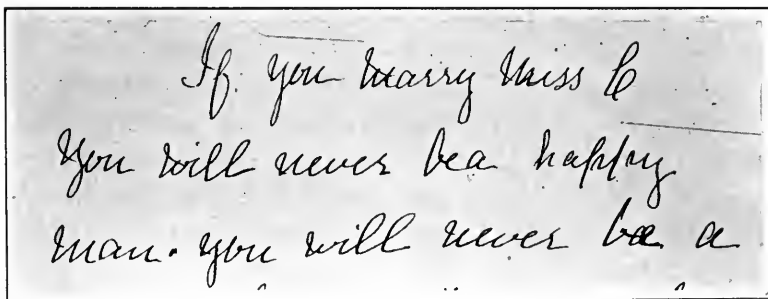 If you marry Miss C
You will never be a happy
man. you will never be a